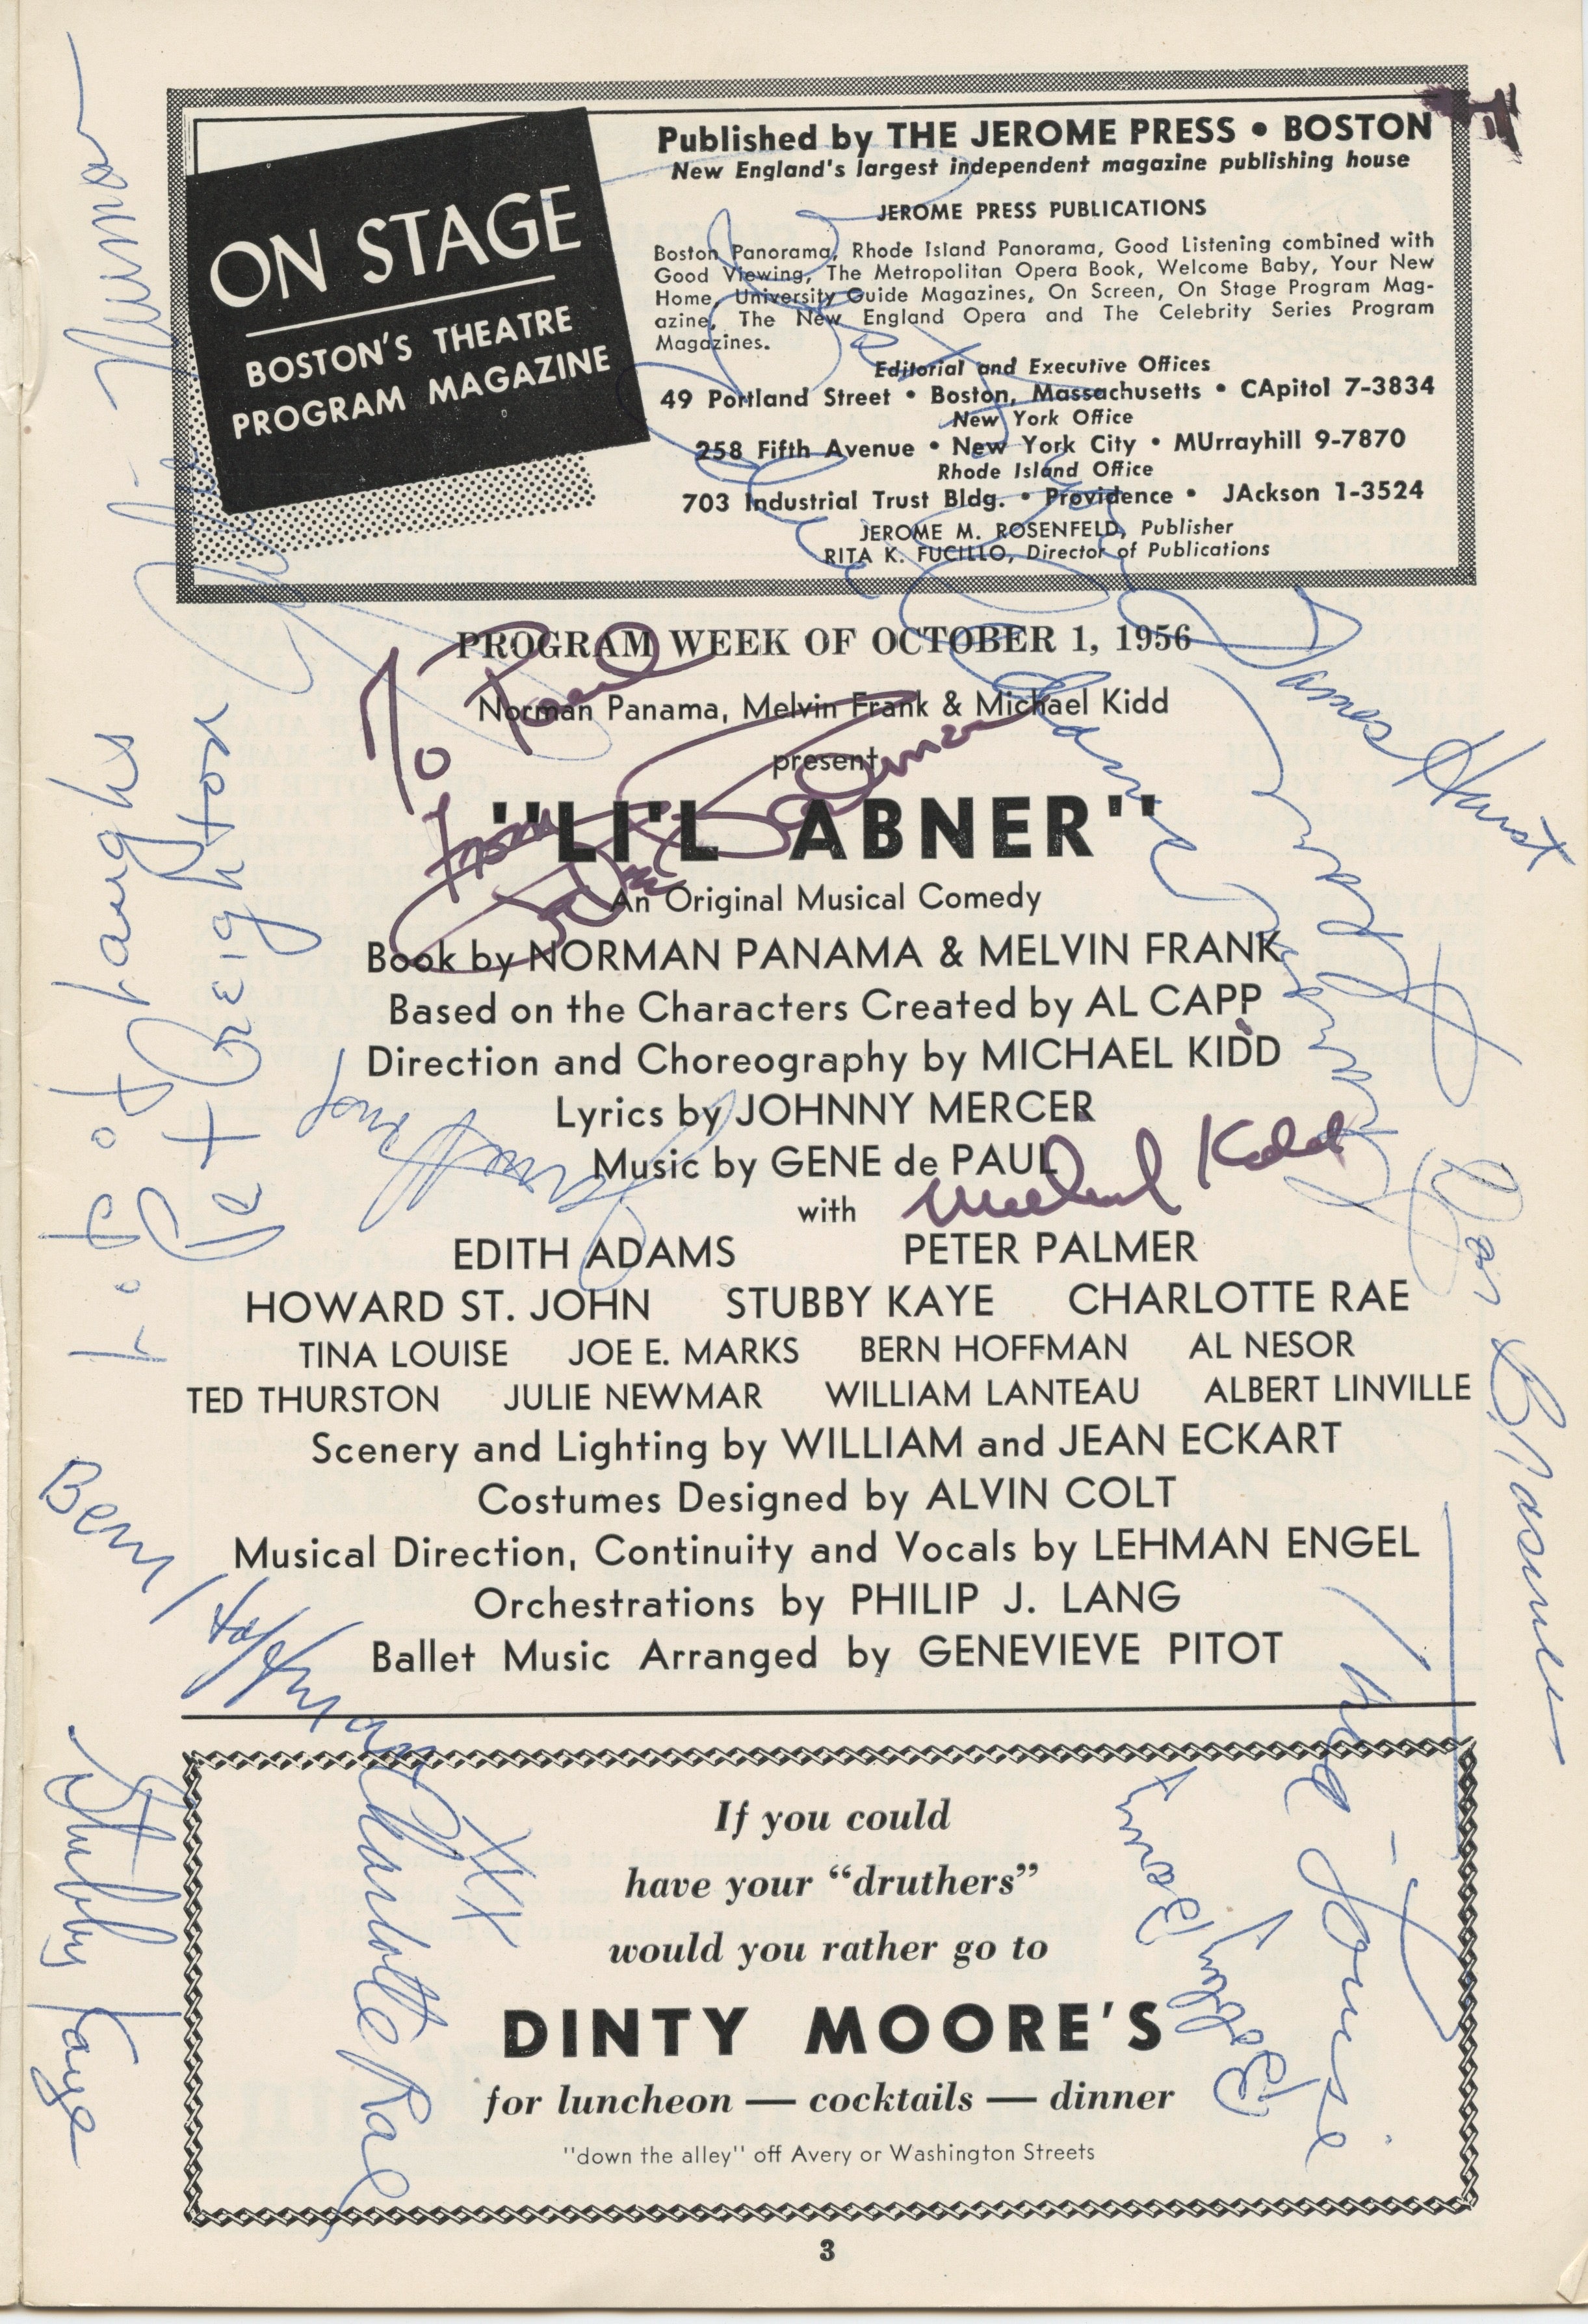 ON STAGE
BOSTON'S THEATRE
PROGRAM MAGAZINE
Published by THE JEROME PRESS • BOSTON
New England's largest independent magazine publishing house
JEROME PRESS PUBLICATIONS
Boston Panorama, Rhode Island Panorama, Good Listening combined with
Good Viewing, The Metropolitan Opera Book, Welcome Baby, Your New
Home, University Guide Magazines, On Screen, On Stage Program Mag-
azine, The New England Opera and The Celebrity Series Program
Magazines.
Editorial and Executive Offices
49 Portland Street • Boston, Massachusetts • CApitol 7-3834
New York Office
258 Fifth Avenue • New York City • MUrrayhill 9-7870
Rhode Island Office
703 Industrial Trust Bldg. • Providence • JAckson 1-3524
JEROME M. ROSENFELD, Publisher
RITA K. FUCILLO, Director of Publications
PROGRAM WEEK OF OCTOBER 1, 1956
Norman Panama, Melvin Frank & Michael Kidd
present
"LI'L ABNER"
An Original Musical Comedy
Book by NORMAN PANAMA & MELVIN FRANK
Based on the Characters Created by AL CAPP
Direction and Choreography by MICHAEL KIDD
Lyrics by JOHNNY MERCER
Music by GENE de PAUL
with
EDITH ADAMS PETER PALMER
HOWARD ST. JOHN STUBBY KAYE CHARLOTTE RAE
TINA LOUISE JOE E. MARKS BERN HOFFMAN AL NESOR
TED THURSTON JULIE NEWMAR WILLIAM LANTEAU ALBERT LINVILLE
Scenery and Lighting by WILLIAM and JEAN ECKART
Costumes Designed by ALVIN COLT
Musical Direction, Continuity and Vocals by LEHMAN ENGEL
Orchestrations by PHILIP J. LANG
Ballet Music Arranged by GENEVIEVE PITOT
If you could
have your "druthers"
would you rather go to
DINTY MOORE'S
for luncheon — cocktails — dinner
"down the alley" off Avery or Washington Streets
3
Julie Newmar
To Paul
from
James Hurst
Lots of Laughs
Pat Creighton
Michael Kidd
Bern Hoffman
Stubby Kaye
Charlotte Rae
XXX
Tina Louise